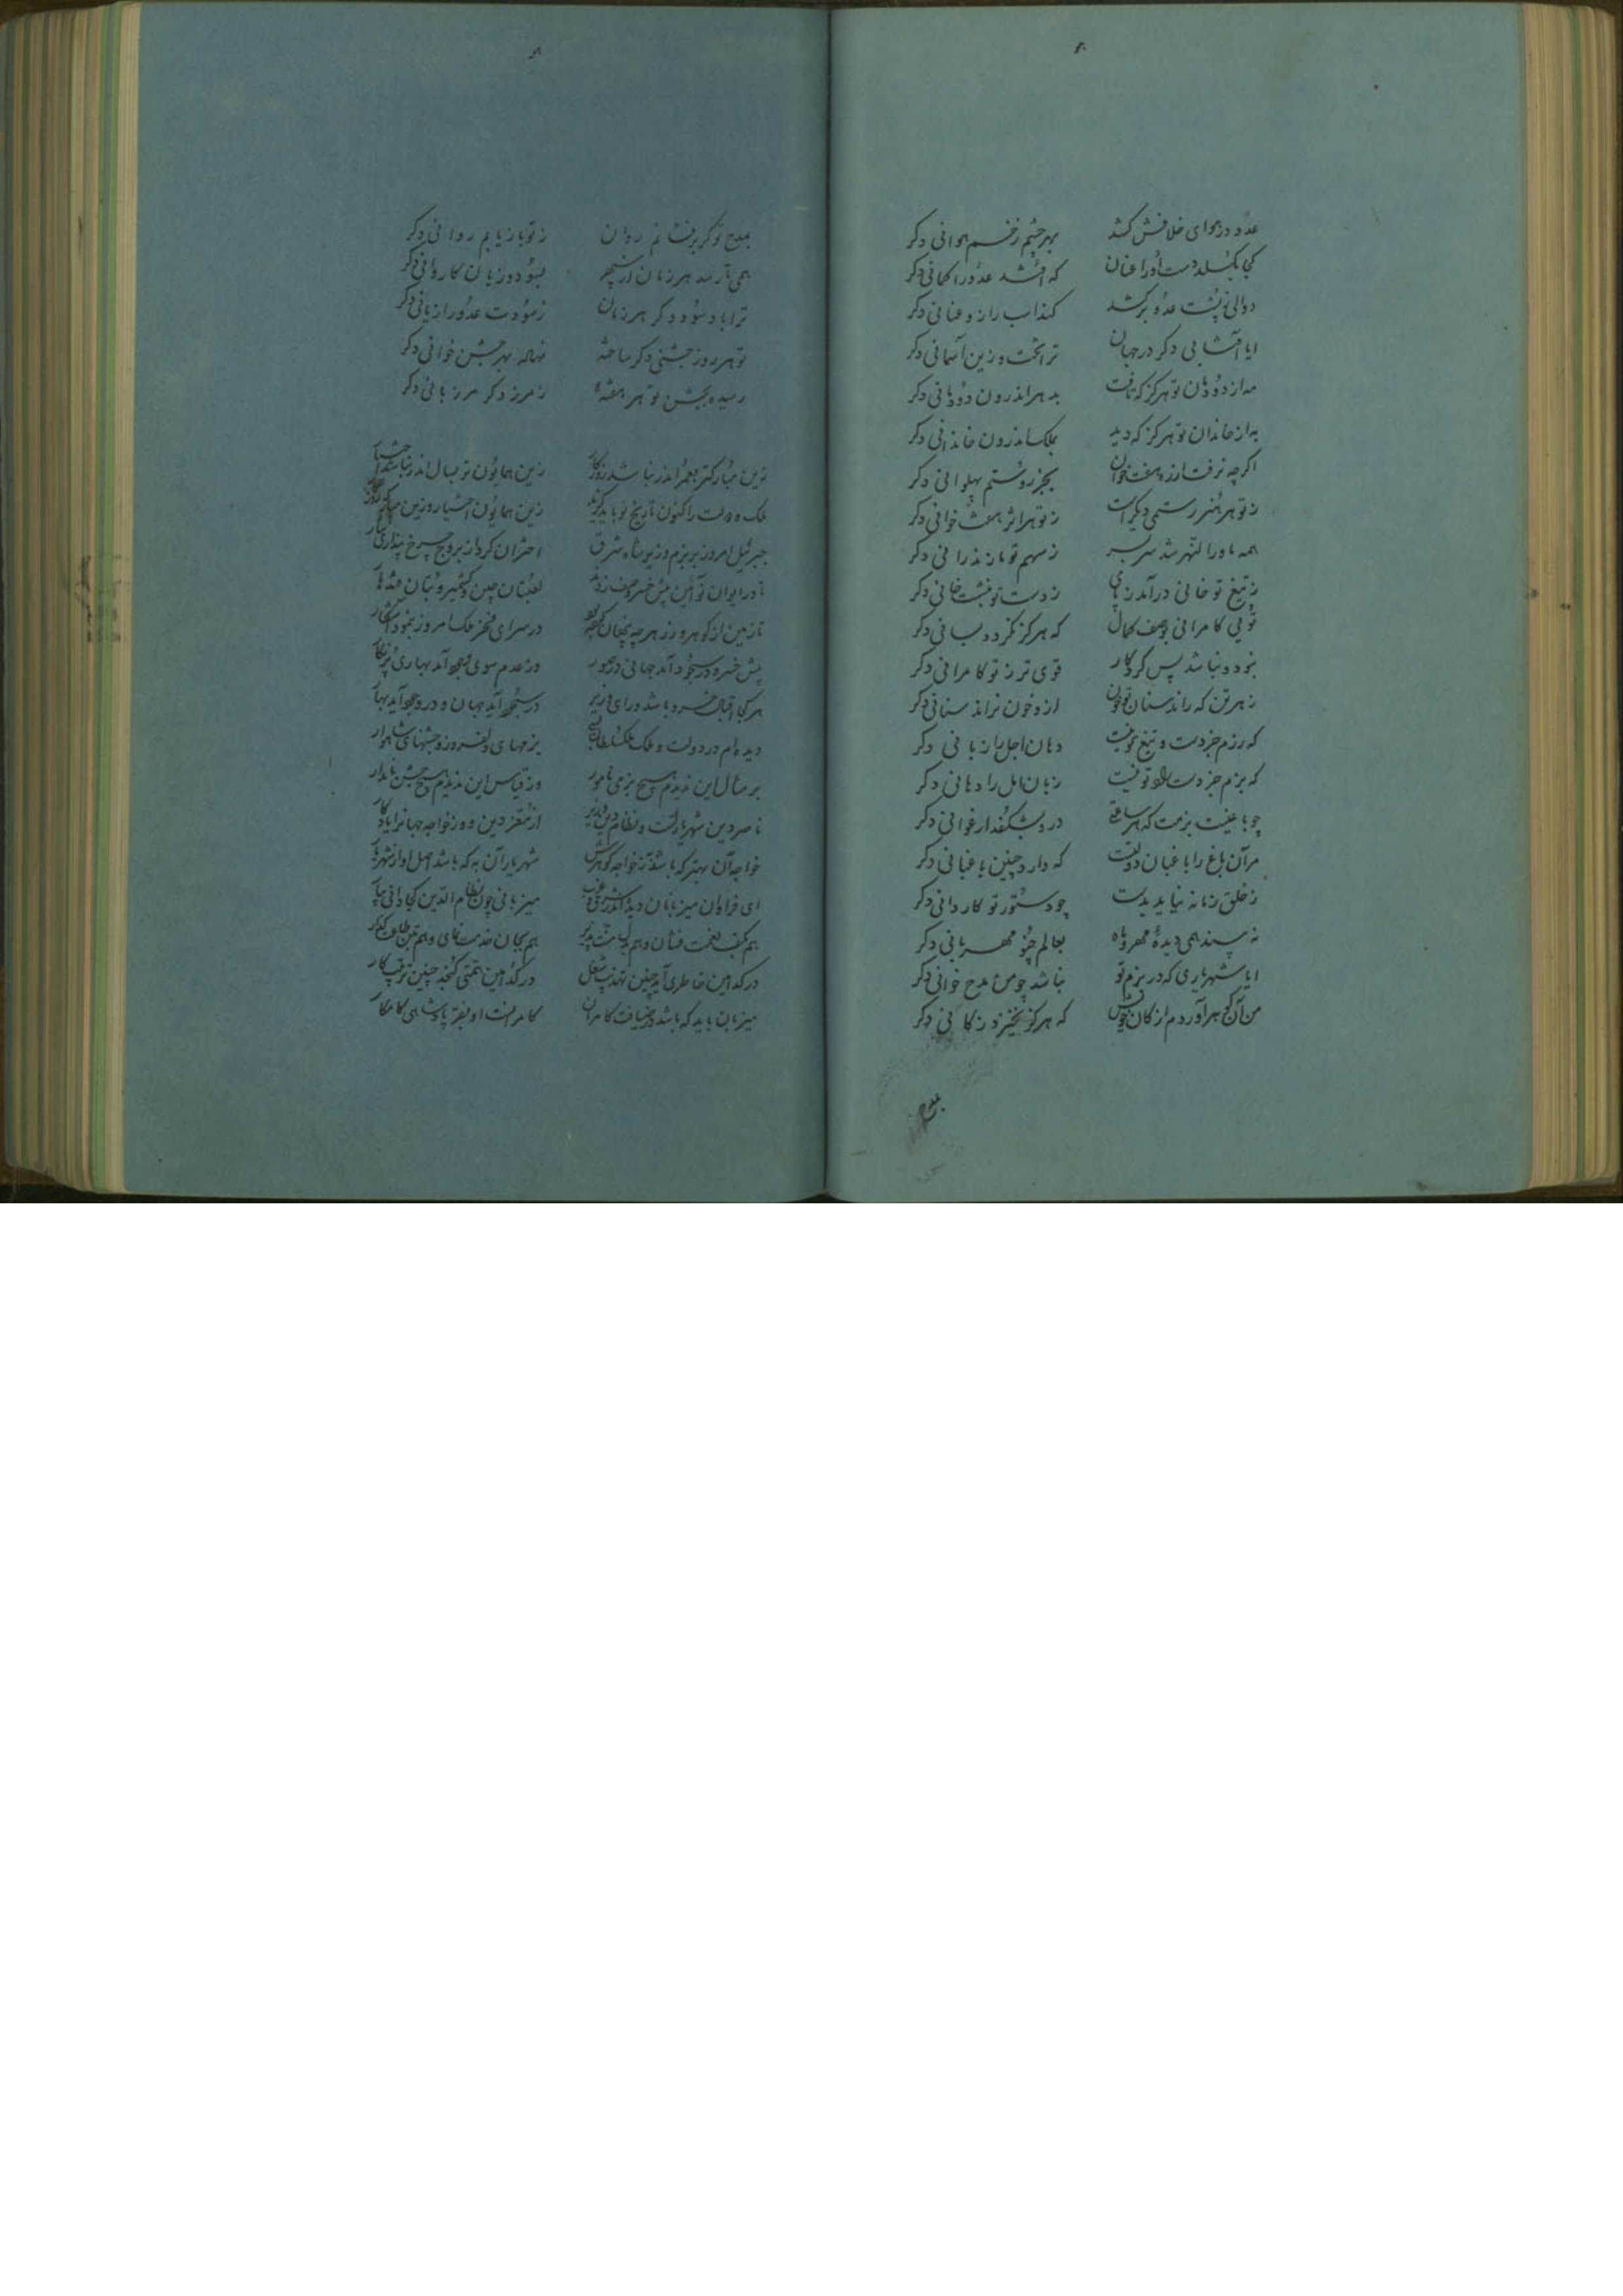 عدو در هوای خلافش کشد بهر چشم زخم هوانی دکر
کجا بکسلد دست او را عنان که افتد عدو را کمانی دکر
دوالی ز پشت عدو برکشد کند اسب را زو عنانی دکر
ایا آفتابی دکر در جهان ترا تخت و زین آسمانی دکر
مه از دودمان تو هرکز که تافت بدهر اندرون دودمانی دکر
به از خاندان تو هرکز که دید بملک اندرون خاندانی دکر
اکرچه نرفت از ره هفت خوان بجز روستم پهلوانی دکر
ز تو هر هنر رستمی دیکر است ز تو هر اثر هفت خوانی دکر
همه ماورا النهر شد سر بسر ز سهم تو مازندرانی دکر
ز تیغ تو خانی درآمد ز پای ز دست تو بنشست خانی دکر
توئی کامرانی بوصف کمال که هرکز نکردد بسانی دکر
نبود و نباشد پس کردکار قوی تر ز تو کامرانی دکر
ز هر تن که راند سنان تو خون ازو خون نراند سنانی دکر
که رزم جز دست و تیغ تو نیست دهان اجل را زبانی دکر
که بزم جز دست راد تو نیست زبان امل را دهانی دکر
چو باغیست بزمت که هر ساعتی درو بشکفد ارغوانی دکر
مر آن باغ را باغبان دولتست که دارد چنین باغبانی دکر
ز خلق زمانه نیاید بدست چو دستور تو کاردانی دکر
نه بیند همی دیدهٔ مهر و ماه بعالم چنو مهربانی دکر
ایا شهریاری که در بزم تو نباشد چو من مدح خوانی دکر
من آن کوهر آوردم از کان خویش که هرکز نخیزد ز کانی دکر
بمدح تو کر برفشانم روان ز تو بازیابم روانی دکر
همی تا رسد هر زمان از سپهر بسود و زیان کاروانی دکر
ترا باد سود دکر هر زمان ز سودت عدو را زیانی دکر
تو هر روز جشنی دکر ساخته نهاده بهر جشن خوانی دکر
رسیده بجشن تو هر هفته ز مرز دکر مرزبانی دکر
زین مبارکتر بعمر اندر نباشد روزکار زین همایون تر بسال اندر نباشد
ملک و دولت را کنون تاریخ نو باید کرفت زین همایون اختیار و زین مبارک روزکار
جبرئیل امروز بر بزم وزیر شاه شرق اختران کرد از بروج چرخ پنداری نثار
تا در ایوان نو آئین پیش خسرو صف زدند لعبتان چین و کشمیر و بتان قندهار
تا زمین از کوهر و زر هر چه پنهان کرده بود در سرای فخر ملک امروز بنمود آشکار
پیش خسرو در سجود آمد جهانی در سرور وز عدم سوی وجود آمد بهاری پرنکار
هر کجا اقبال خسرو باشد و رای وزیر در سجود آید جهان و در وجود آید بهار
دیده‌ام در دولت و ملک ملک سلطان بسی بزمهای دلفروز و جشنهای شاهوار
بر مثال این ندیدم هیچ بزمی نامور وز قیاس این ندیدم هیچ جشن نامدار
ناصر دین شهریارست و نظام دین وزیر
خواجه آن بهتر که باشد از خواجه کوهرش شهریار آن به که باشد اصل او از شهریار
ای فراوان میزبانان دیده اندر شرق و غرب میزبانی چون نظام الدین کجا دانی بیار
هم بکف نعمت فشان و هم بلب منت پذیر هم بجان خدمت نمای و هم بتن طاعت کذار
در کدامین خاطری آید چنین تهذیب شغل در کدامین همتی کنجد چنین ترتیب کار
میزبان باید که باشد در ضیافت کامران کامرانست او بفر پادشاهی کامکار